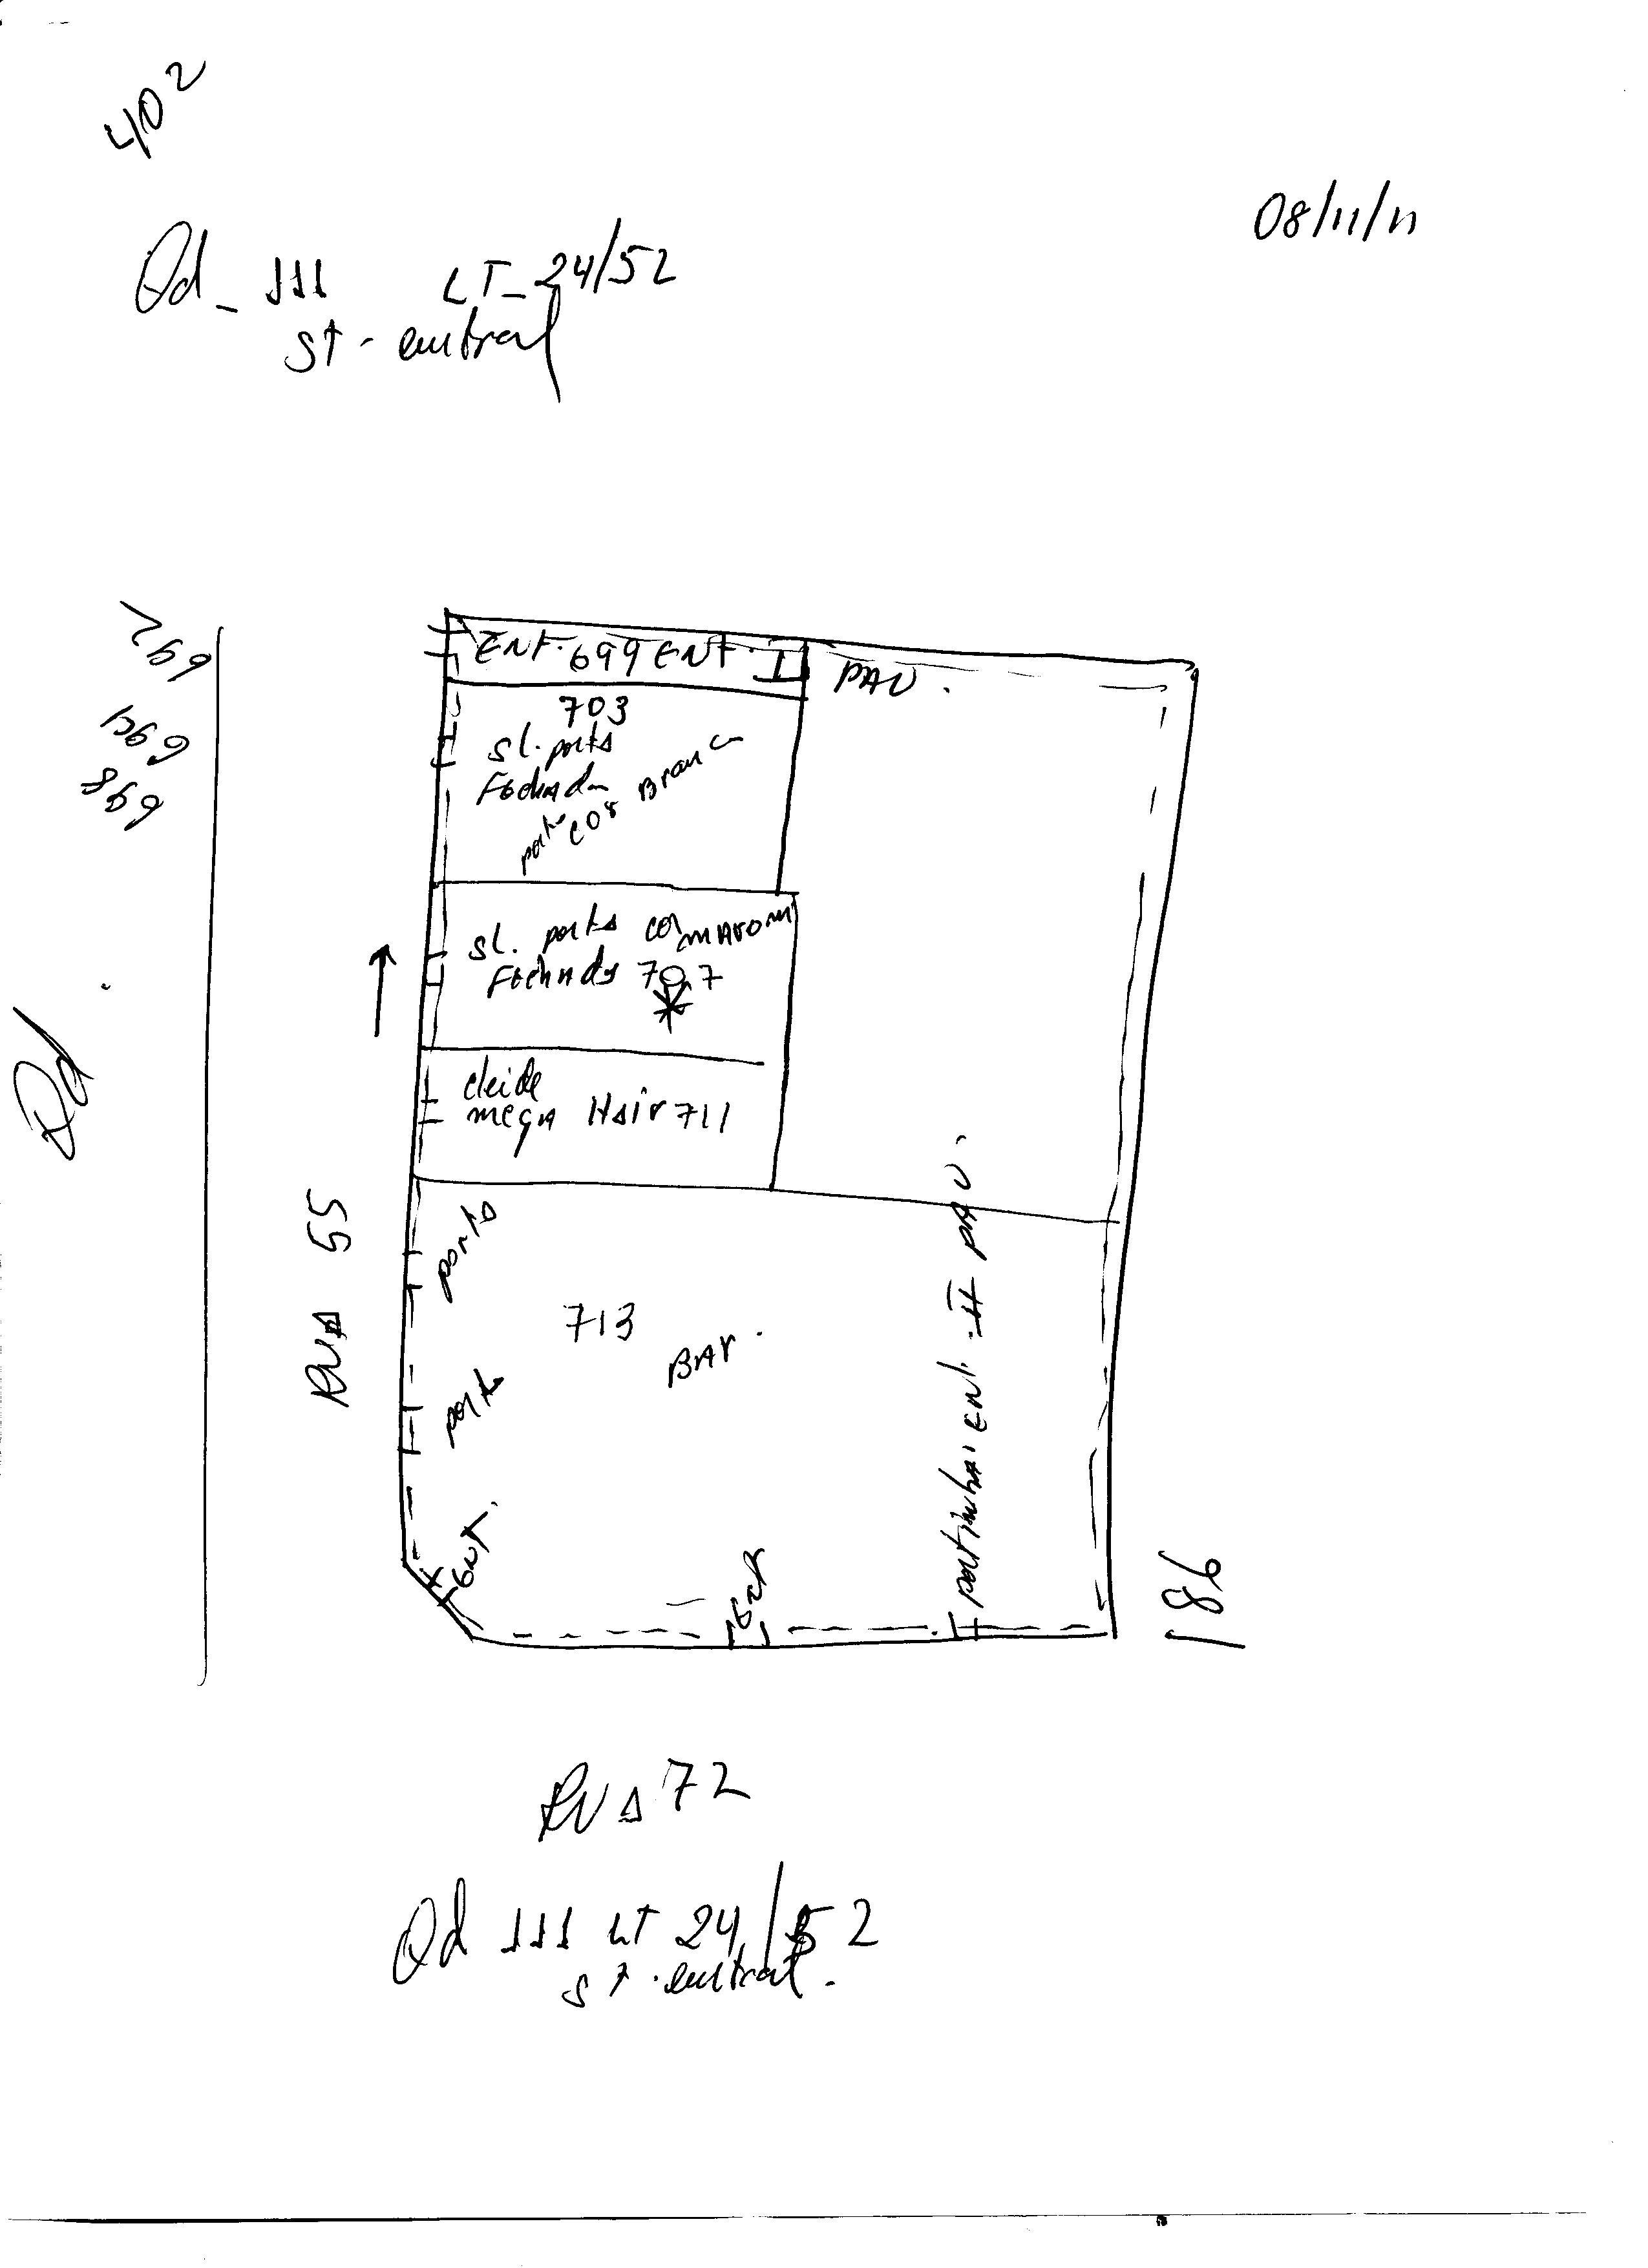 402
08/11/11
Qd_ 111 LT_ 24/52
st - central
692
698
ENT. 699 ENT. I PAV.
703
sl. porta
Fechada
porta cor Branca
sl. porta cor marom
Fechada 707
cleide
mega Hair 711
Qd.
RUA 55
porta
713
BAr.
porta
portinha ENT. II PAV.
ENT.
Ent
186
RUA 72
Qd 111 LT 24/52
st. central.